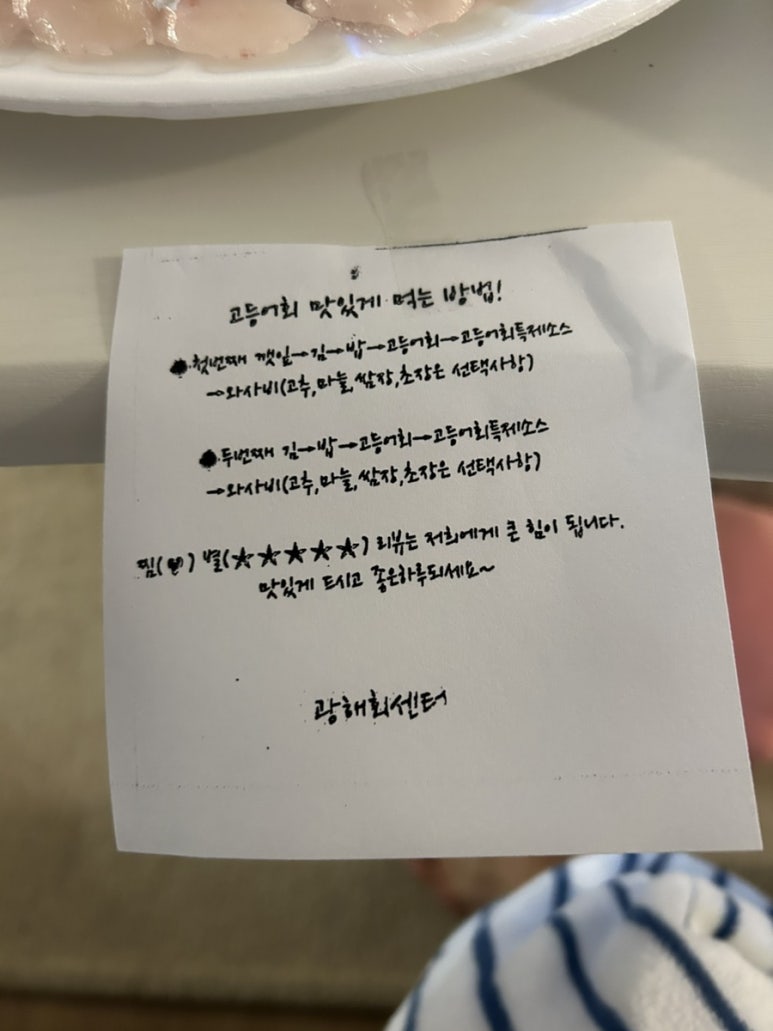 고등어회 맛있게 먹는 방법!
●첫번째 깻잎→김→밥→고등어회→고등어회특제소스
→와사비(고추,마늘,쌈장,초장은 선택사항)
●두번째 김→밥→고등어회→고등어회특제소스
→와사비(고추,마늘,쌈장,초장은 선택사항)
찜(♥) 별(★★★★★) 리뷰는 저희에게 큰 힘이 됩니다.
맛있게 드시고 좋은하루되세요~
광해회센터